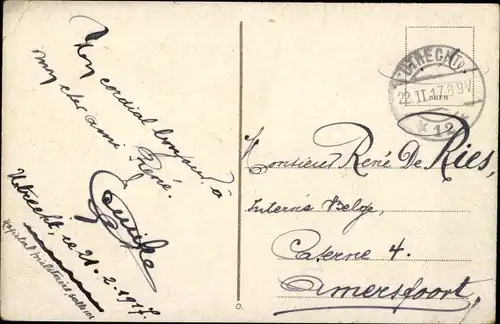 Un cordial bonjour à
mon cher ami René.
Utrecht, ce 21.2.1917.
UTRECHT
22.II.17.8-9V
12
Monsieur René De Ries,
Interné Belge,
Caserne 4.
Amersfoort.